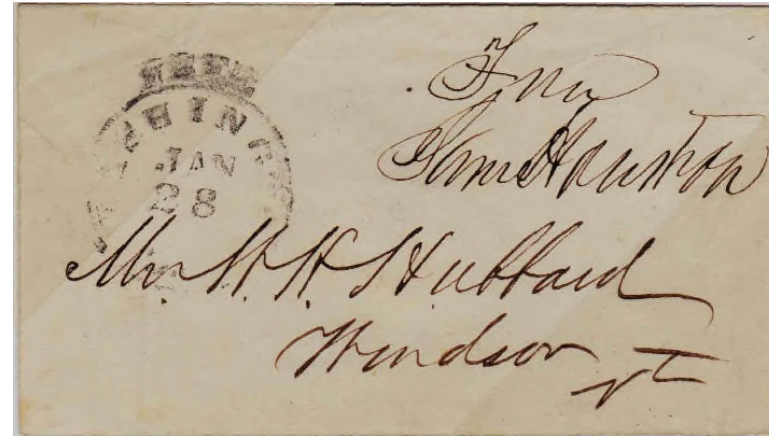 FREE
WASHING
JAN
28
Free
Sam Houston
Mr. H. H. Hubbard
Windsor
Vt